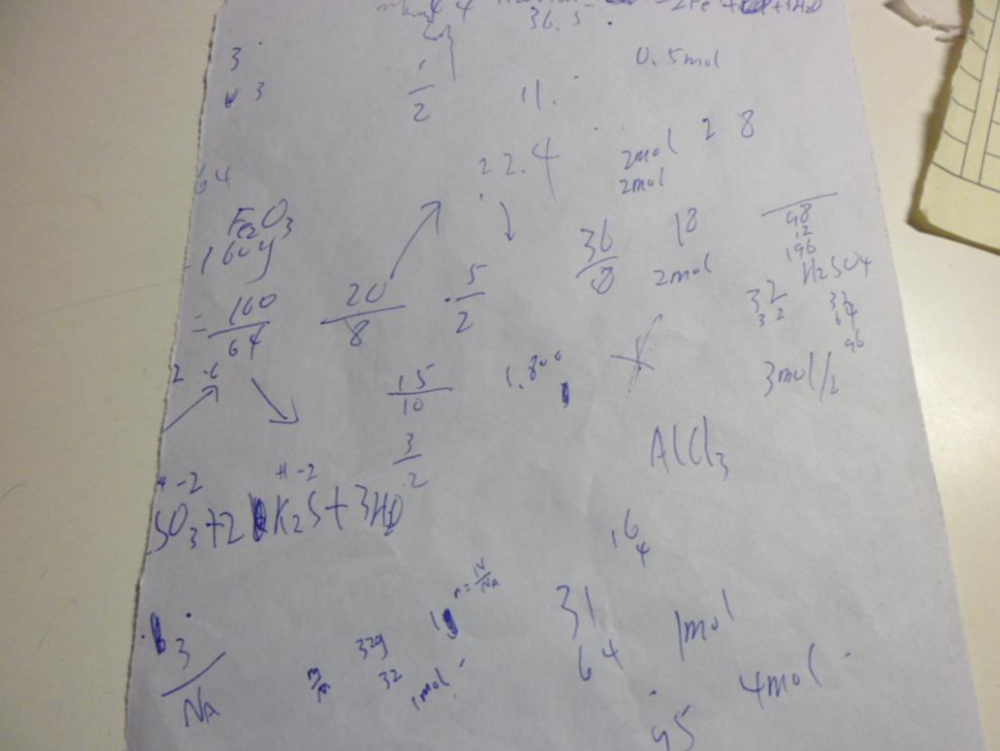 36.5
3
1/2
0.5mol
3
11.
22.4
2mol 2 8
2mol
64
Fe2O3
160g
36
18
2mol
48
12
196
H2SO4
= 160/64
20/8
5/2
32
32
32
64
96
15/10
1.8
3mol/2
3/2
AlCl3
-2
-2
SO3+2K2S+3H2O
16
4
n=N/NA
3/NA
32g
32
1mol
31
64
1mol
4mol
95